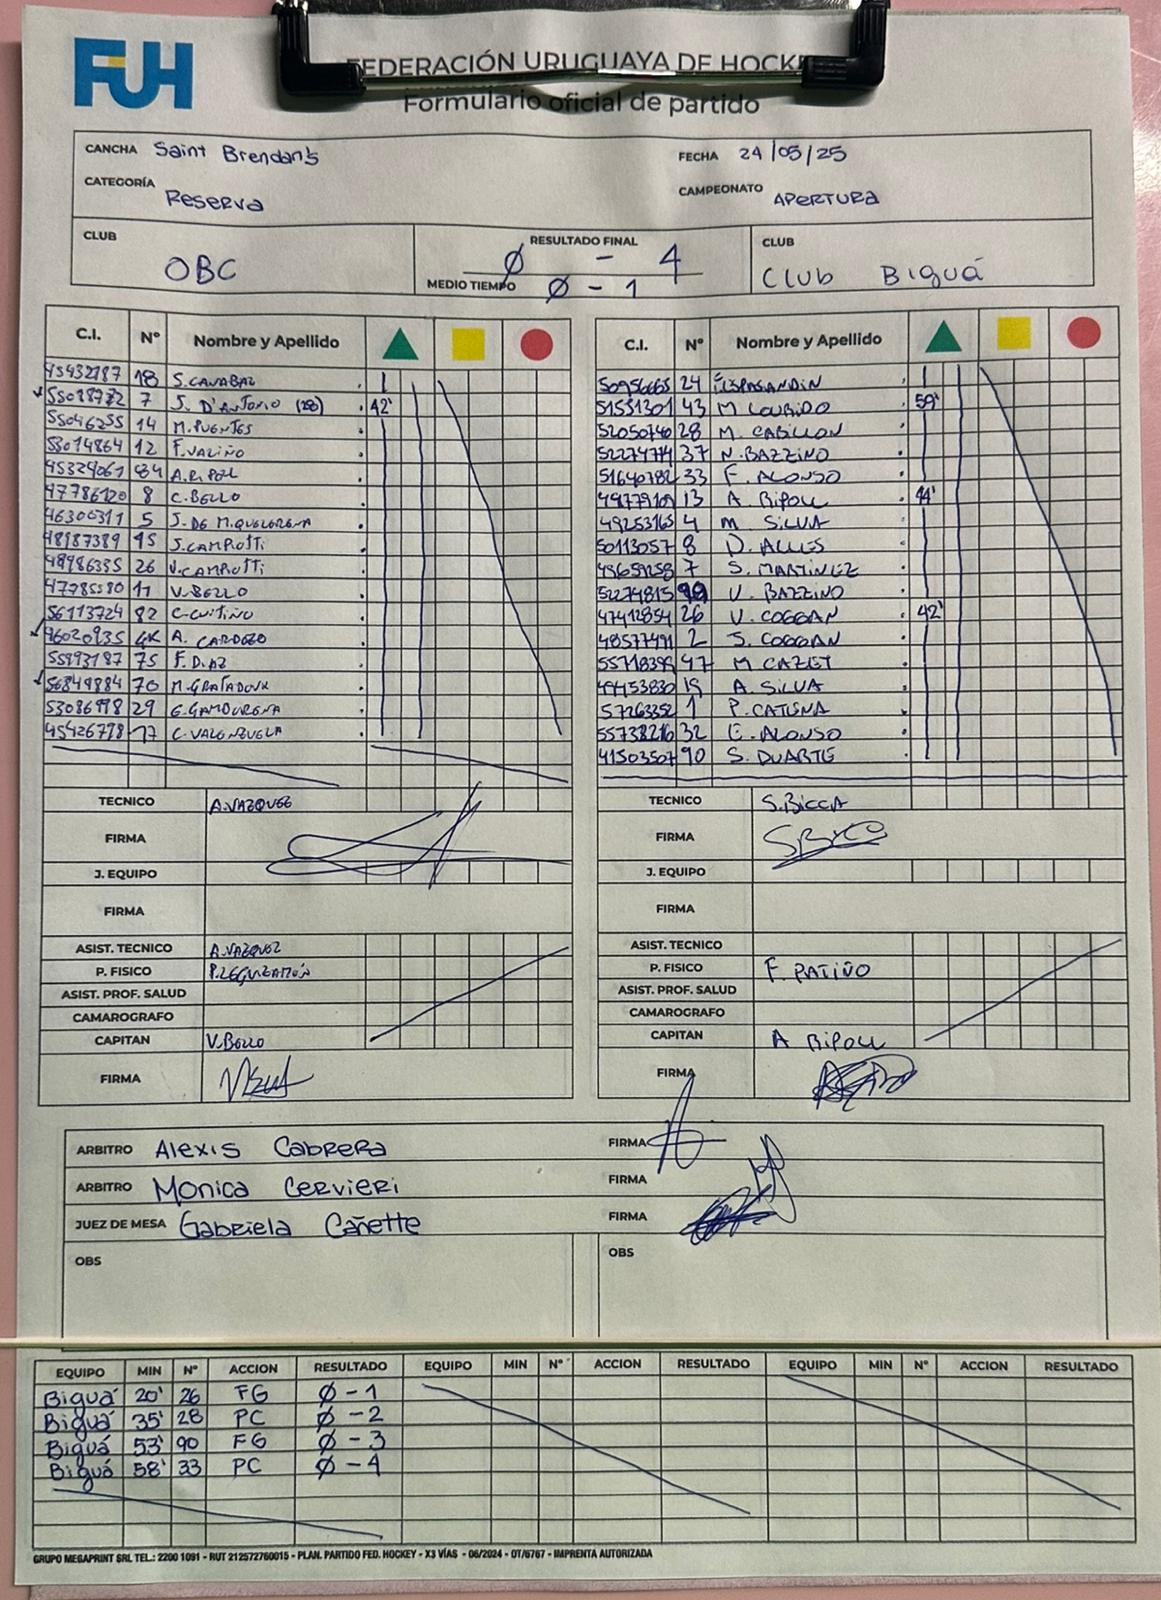 FUH
FEDERACIÓN URUGUAYA DE HOCKE
Formulario oficial de partido
CANCHA Saint Brendan's
FECHA 24/05/25
CATEGORÍA Reserva
CAMPEONATO APERTURA
CLUB OBC
RESULTADO FINAL Ø - 4
MEDIO TIEMPO Ø - 1
CLUB Club Biguá
C.I. Nº Nombre y Apellido
45432187 18 S. CANABAL
7 J. D'ANTONIO (28) 42'
55046255 14 M. PUENTES
55014864 12 F. VALIÑO
A. RIPOLL
47786120 8 C. BELLO
46306311 5
48187389 45 J. CAMPIOTTI
48986355 26 V. CAMPIOTTI
47785580 11 V. BELLO
56113724 82 C. CUITIÑO
46020935 GK A. CARDOZO
55893187 75 F. DIAZ
56849884 70
53086998 29
45426798 17 C. VALENZUELA
TECNICO A. VAZQUEZ
FIRMA
J. EQUIPO
FIRMA
ASIST. TECNICO A. VAZQUEZ
P. FISICO P. LEGUIZAMÓN
ASIST. PROF. SALUD
CAMAROGRAFO
CAPITAN V. BELLO
FIRMA
C.I. Nº Nombre y Apellido
50956665 24
51551301 43 M LOURIDO 59'
52050740 28 M. CABILLON
52274774 37 N. BAZZINO
51640782 33 F. ALONSO
49779109 13 A. RIPOLL 44'
49253165 4 M. SILVA
50113057 8 D. ALLES
48659258 7 S. MARTINEZ
52274815 99 V. BAZZINO
47412854 26 V. COGGAN 42'
48577491 2 S. COGGAN
55718399 47 M CAZET
49453830 19 A. SILVA
57263352 1 P. CATENA
55738216 32 E. ALONSO
41503507 90 S. DUARTE
TECNICO S. BICCA
FIRMA
J. EQUIPO
FIRMA
ASIST. TECNICO
P. FISICO F. PATIÑO
ASIST. PROF. SALUD
CAMAROGRAFO
CAPITAN A RIPOLL
FIRMA
ARBITRO Alexis Cabrera FIRMA
ARBITRO Monica Cervieri FIRMA
JUEZ DE MESA Gabriela Cañette FIRMA
OBS
OBS
EQUIPO MIN Nº ACCION RESULTADO EQUIPO MIN Nº ACCION RESULTADO EQUIPO MIN Nº ACCION RESULTADO
Biguá 20' 26 FG Ø - 1
Biguá 35' 28 PC Ø - 2
Biguá 53' 90 FG Ø - 3
Biguá 58' 33 PC Ø - 4
GRUPO MEGAPRINT SRL TEL.: 2200 1091 - RUT 212572760015 - PLAN. PARTIDO FED. HOCKEY - X3 VÍAS - 06/2024 - OT/6767 - IMPRENTA AUTORIZADA